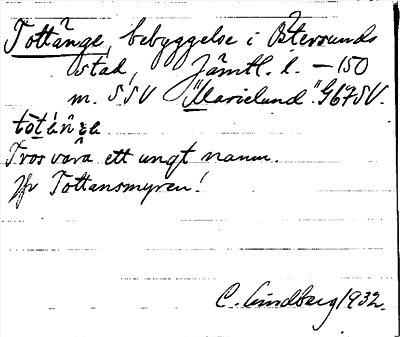 Tottänge, bebyggelse i Östersunds
stad, Jämtl. l. – 150
m. SSV "Marielund" G67SV.
Tros vara ett ungt namn.
Jfr Tottansmyren!
C. Lindberg 1932.